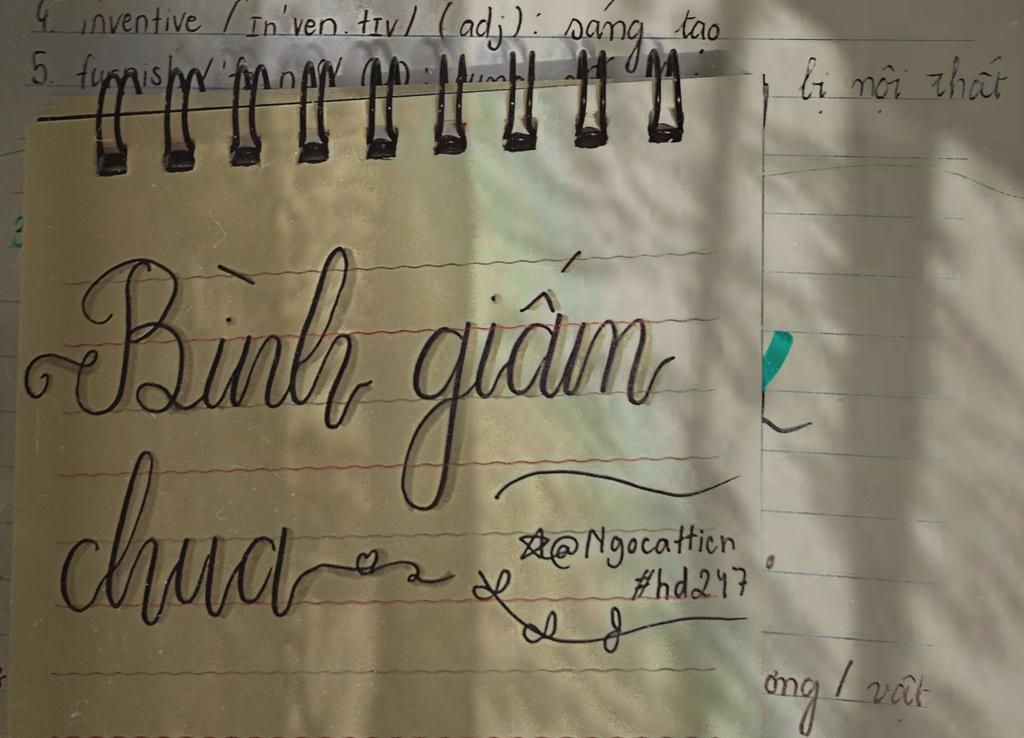 4. inventive / In'ven.tIv/ (adj): sáng tạo
5. furnish
bị nội thất
Bình giấm
chua
@Ngocatticn
#hd247
ong / vật